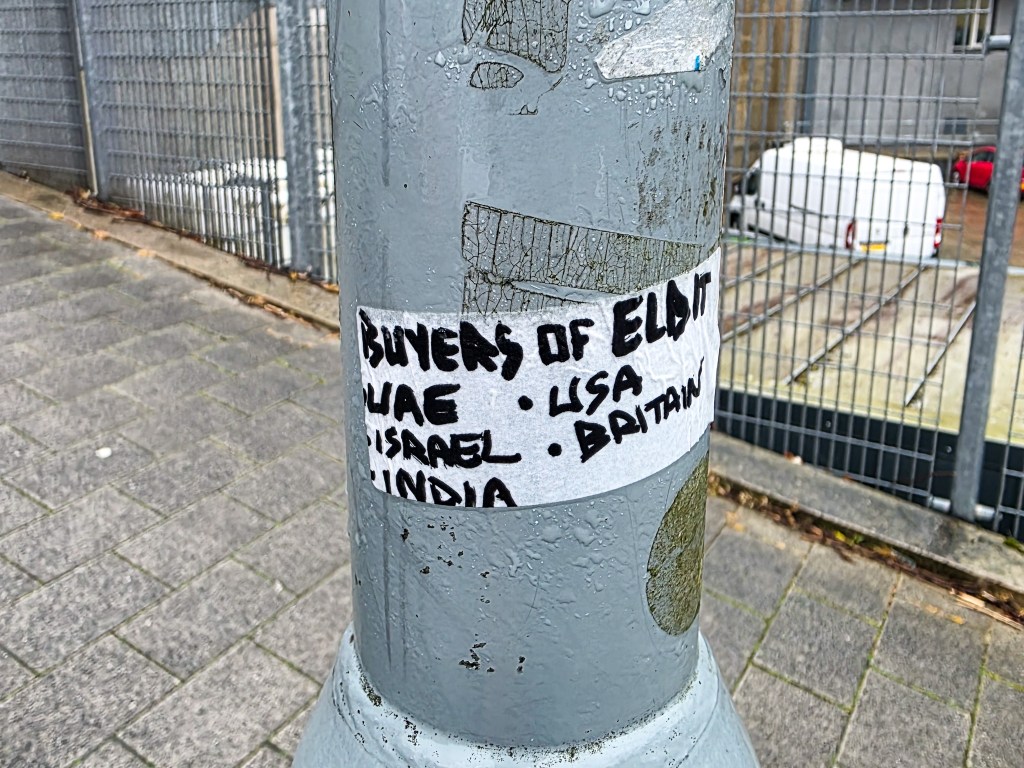 BUYERS OF ELBIT
• UAE • USA
• ISRAEL • BRITAIN
• INDIA